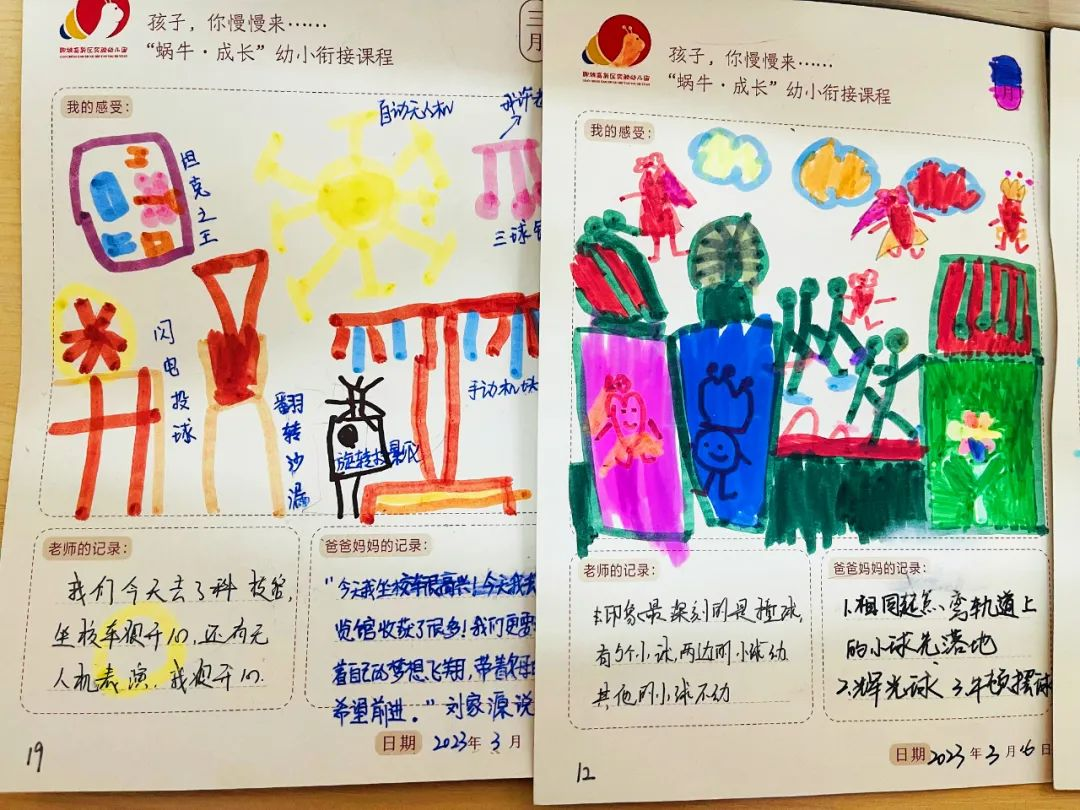 孩子，你慢慢来……
“蜗牛·成长”幼小衔接课程
三月
我的感受：
自动无人机
坦克之王
三球
闪电投球
翻转沙漏
手动机
旋转投影仪
老师的记录：
我们今天去了科技馆，
坐校车很开心，还有无
人机表演，我很开心。
爸爸妈妈的记录：
“今天我坐校车很高兴！今天我
览馆收获了很多！我们更要
着自己的梦想飞翔，带着
希望前进。”刘家源说
日期 2023年3月
19
孩子，你慢慢来……
“蜗牛·成长”幼小衔接课程
月
我的感受：
老师的记录：
印象最深刻的是撞球，
有5个小球，两边的小球动
其他的小球不动
爸爸妈妈的记录：
1.相同起点、弯轨道上
的小球先落地
2.辉光球 3.牛顿摆球
日期 2023年3月16日
12